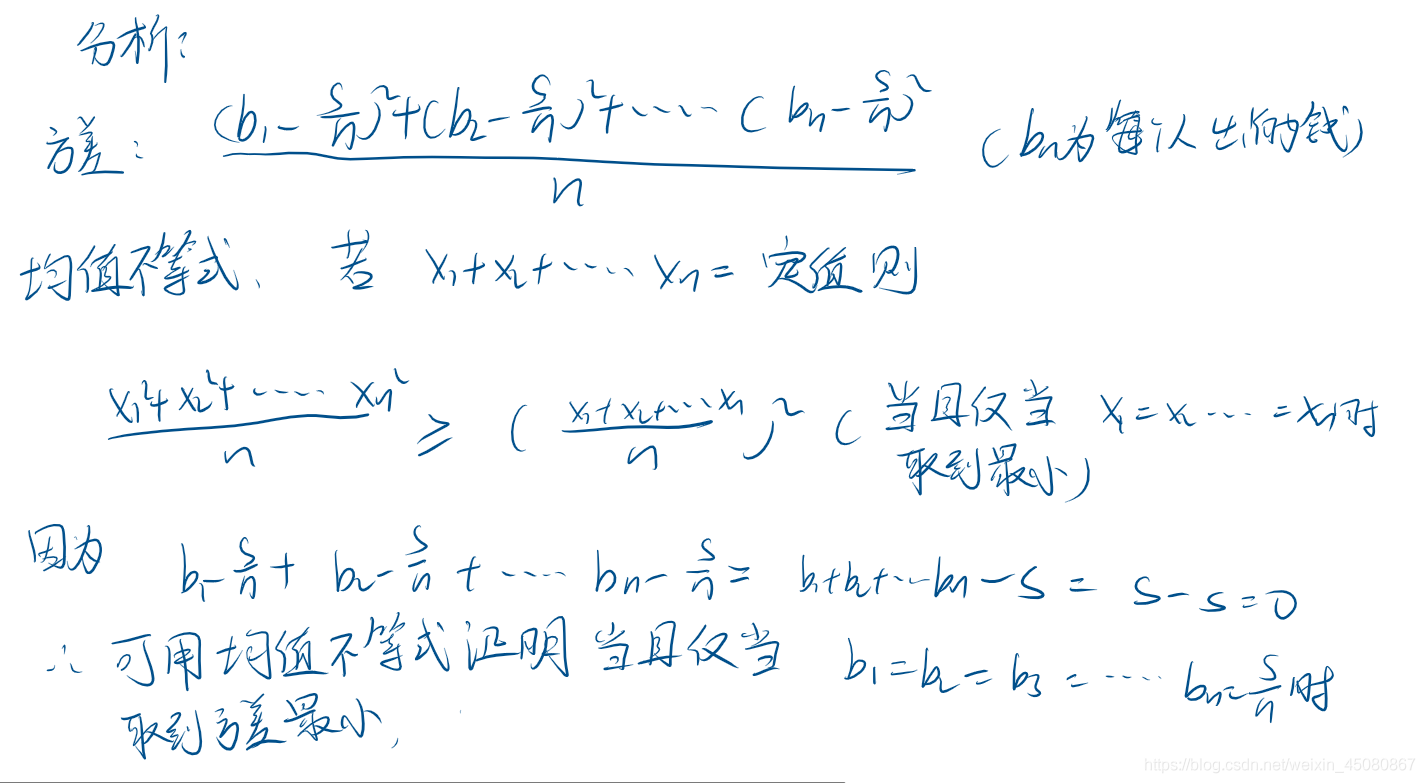 分析:
方差: ((b₁-s/n)²+(b₂-s/n)²+……(bn-s/n)²)/n (bn为每个人出的钱)
均值不等式、若 x₁+x₂+……xn=定值则
(x₁²+x₂²+……xn²)/n ≥ ((x₁+x₂+…xn)/n)² (当且仅当 x₁=x₂…=xn时
取到最小)
因为 b₁-s/n+b₂-s/n+……bn-s/n=b₁+b₂+…bn-s=s-s=0
∴可用均值不等式证明当且仅当 b₁=b₂=b₃=……bn=s/n时
取到方差最小,
https://blog.csdn.net/weixin_45080867